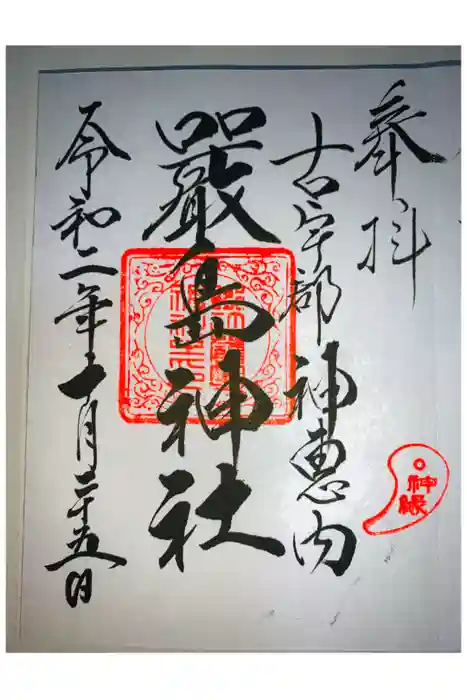 奉拝
古宇部神恵内
嚴島神社
令和二年十月二十五日
神縁